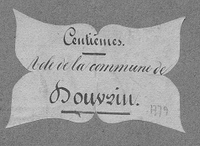 Centièmes.
de la commune de
Douvrin.
1379